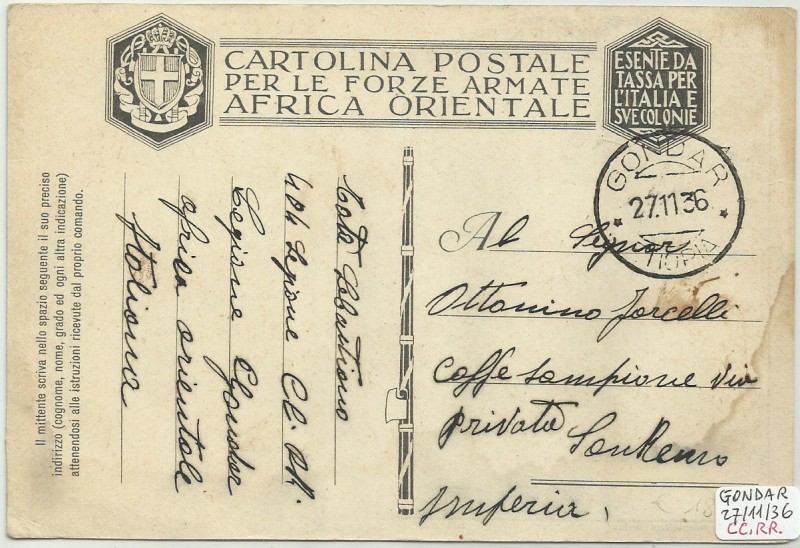 CARTOLINA POSTALE
PER LE FORZE ARMATE
AFRICA ORIENTALE
ESENTE DA
TASSA PER
L'ITALIA E
SVE COLONIE
Il mittente scriva nello spazio seguente il suo preciso
indirizzo (cognome, nome, grado ed ogni altra indicazione)
attenendosi alle istruzioni ricevute dal proprio comando.
Sebastiano
404 Legione CC. RR.
Legione Gondar
Africa orientale
Italiana
GONDAR
27.11 36
ETIOPIA
Al Signor
Ottonino Torcelli
Caffe Sempione Via
Privata San Remo
Imperia
GONDAR
27/11/36
CC.RR.